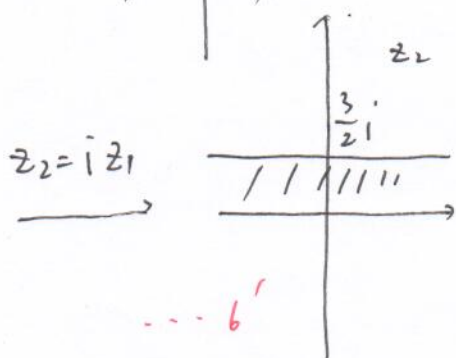 z₂
3/2 i
z₂ = i z₁
.... 6'